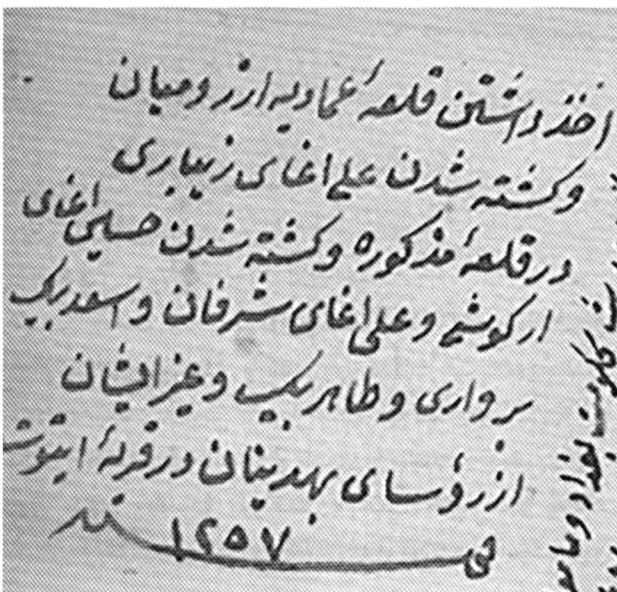 اخذ داشتن قلعهٔ عمادیه از رومیان
وکشته شدن علی اغای زیباری
در قلعهٔ مذکوره وکشته شدن حسین اغای
ارکوشی و علی اغای شرفان و اسعد بیک
برواری و طاهر بیک و غیر ایشان
از رؤسای بهدینان در قریهٔ ایتوت
فی سنه ١٢٥٧
بغداد